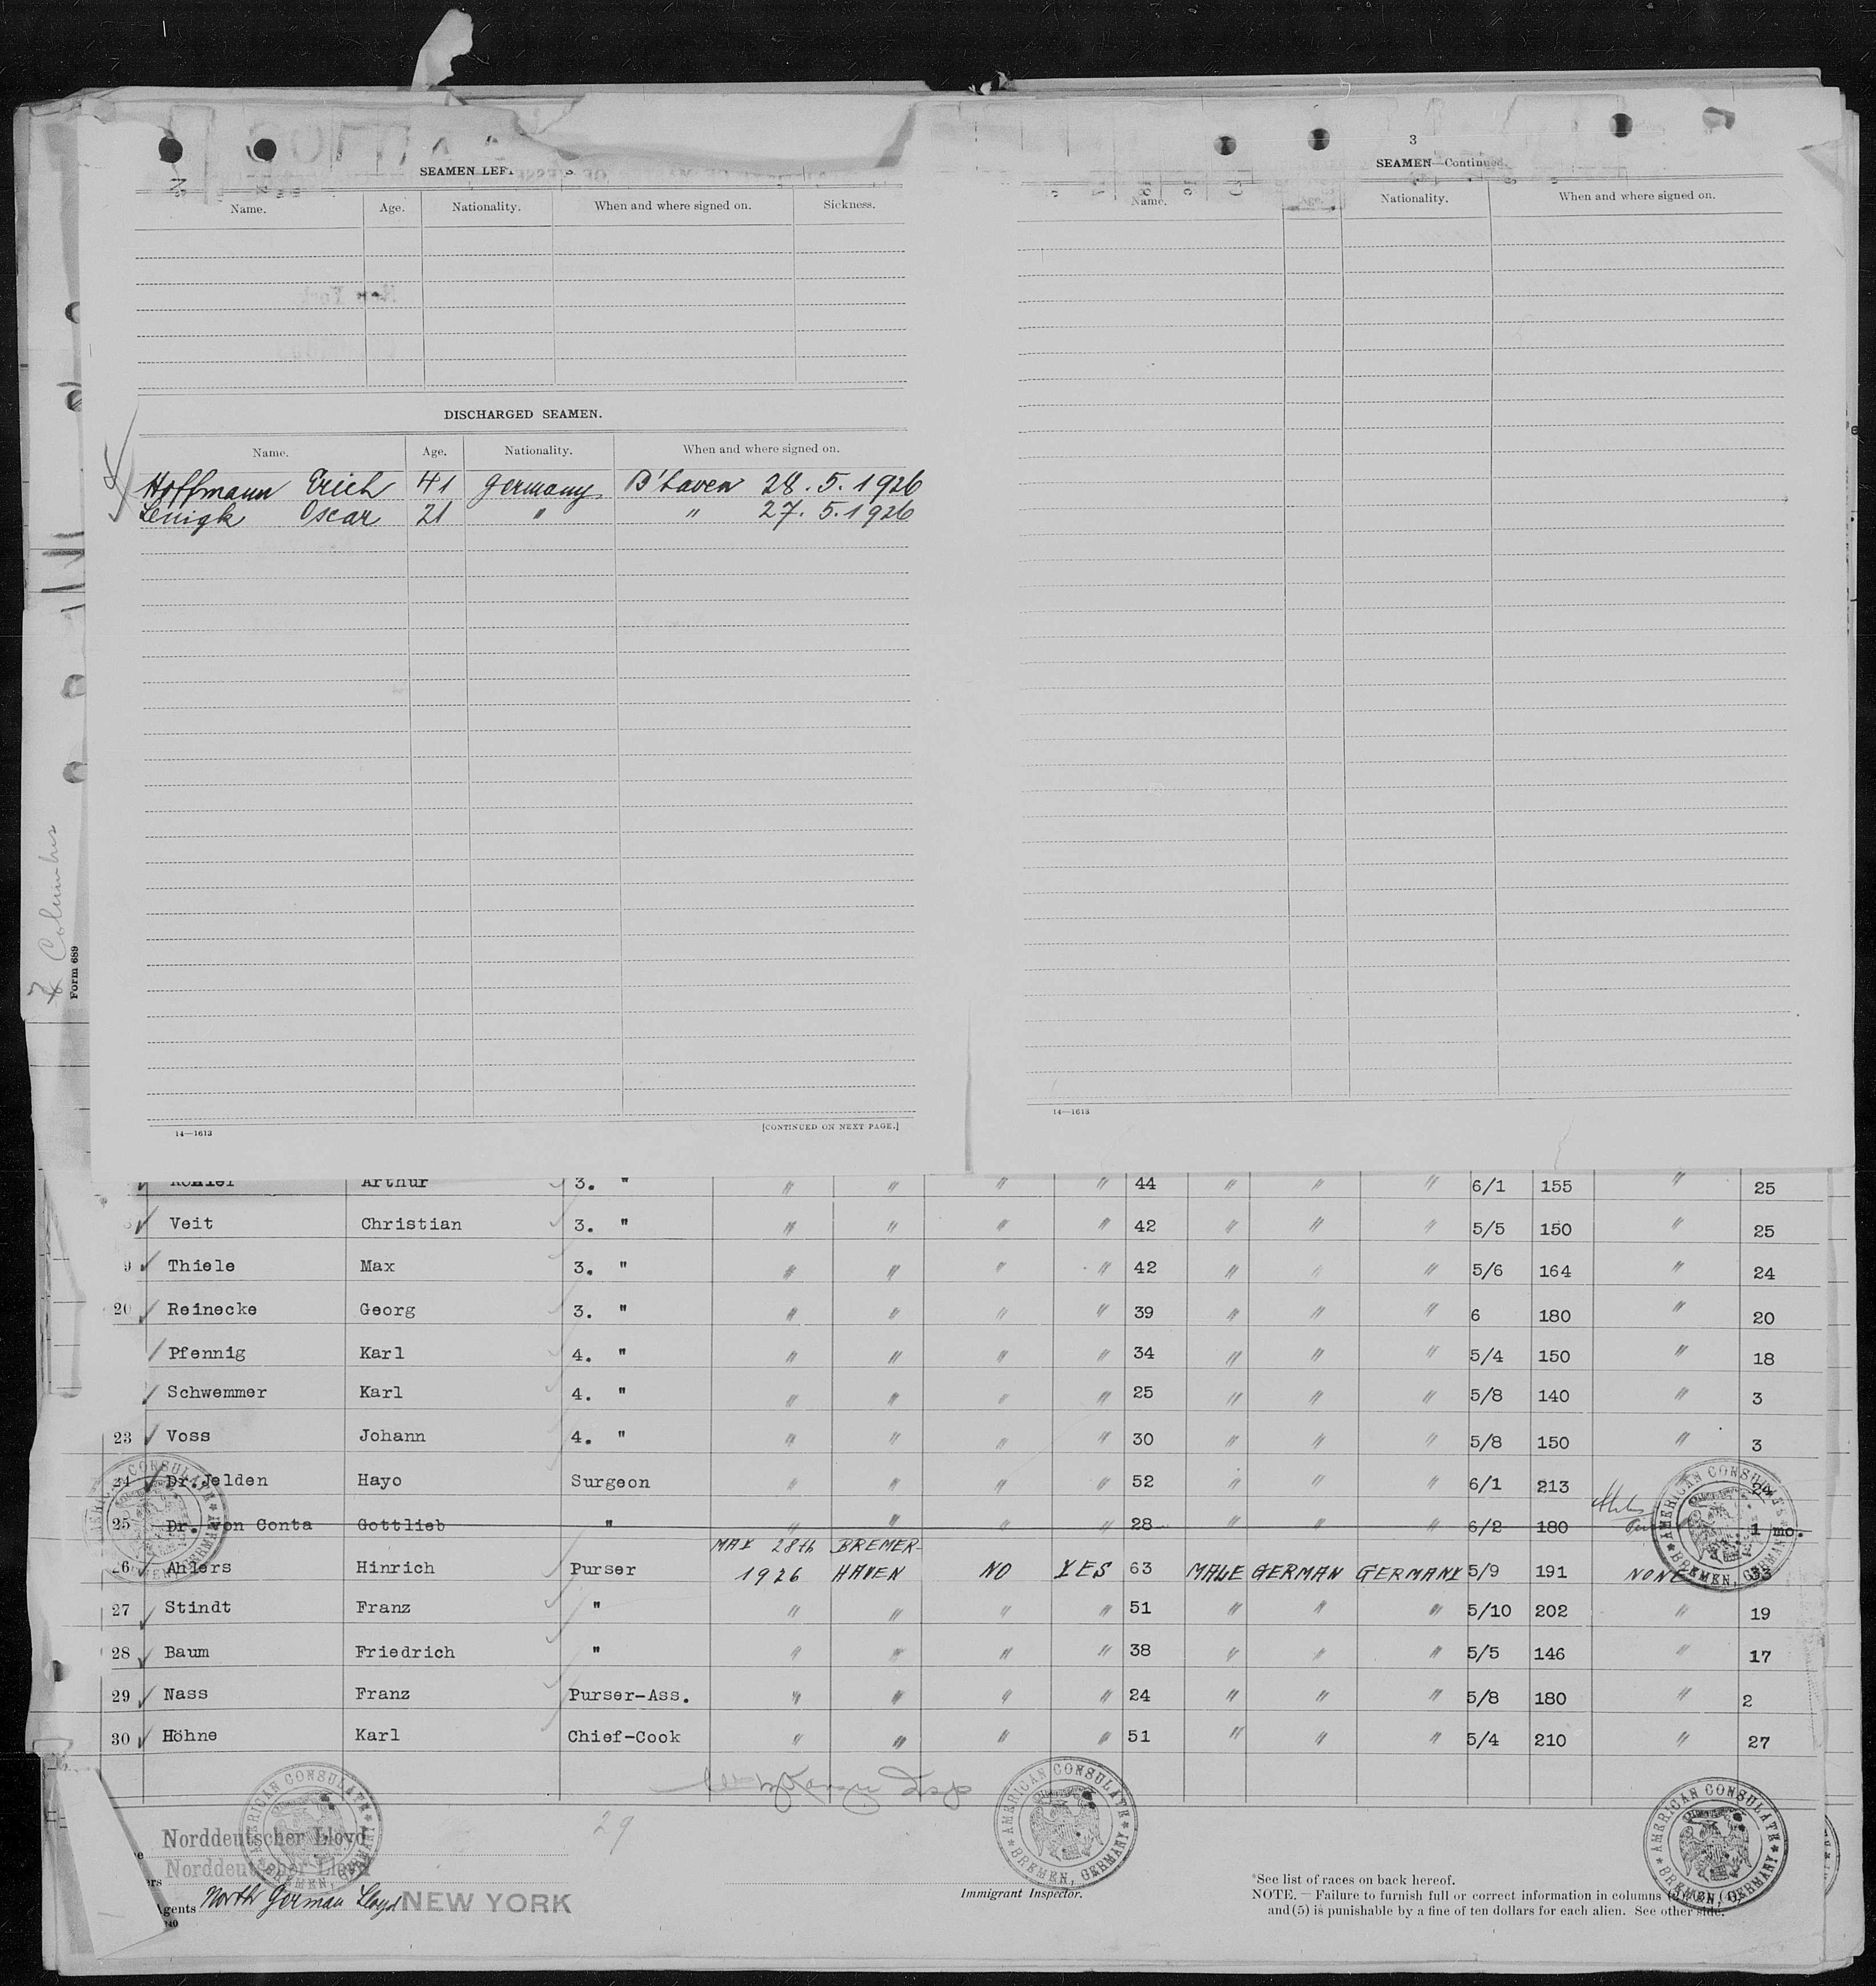 SEAMEN LEF
Name. Age. Nationality. When and where signed on. Sickness.
DISCHARGED SEAMEN.
Name. Age. Nationality. When and where signed on.
Hoffmann Erich 41 Germany B'haven 28. 5. 1926
Lenigk Oscar 21 " " 27. 5. 1926
14—1613 [CONTINUED ON NEXT PAGE.]
3
SEAMEN—Continued.
Name. Age. Nationality. When and where signed on.
14—1613
Columbus
Form 689
Arthur 3. " " " " " 44 " " " 6/1 155 " 25
Veit Christian 3. " " " " " 42 " " " 5/5 150 " 25
9 Thiele Max 3. " " " " " 42 " " " 5/6 164 " 24
20 Reinecke Georg 3. " " " " " 39 " " " 6 180 " 20
Pfennig Karl 4. " " " " " 34 " " " 5/4 150 " 18
Schwemmer Karl 4. " " " " " 25 " " " 5/8 140 " 3
23 Voss Johann 4. " " " " " 30 " " " 5/8 150 " 3
24 Dr. Jelden Hayo Surgeon " " " " 52 " " " 6/1 213
25 Dr. von Conta Gottlieb " " " " " 28 " " " 6/2 180 1 mo.
MAY 28th BREMER-
26 Ahlers Hinrich Purser 1926 HAVEN NO YES 63 MALE GERMAN GERMANY 5/9 191 NONE 33
27 Stindt Franz " " " " " 51 " " " 5/10 202 " 19
28 Baum Friedrich " " " " " 38 " " " 5/5 146 " 17
29 Nass Franz Purser-Ass. " " " " 24 " " " 5/8 180 " 2
30 Höhne Karl Chief-Cook " " " " 51 " " " 5/4 210 " 27
AMERICAN CONSULATE BREMEN, GERMANY
AMERICAN CONSULATE BREMEN, GERMANY
AMERICAN CONSULATE BREMEN, GERMANY
AMERICAN CONSULATE BREMEN, GERMANY
AMERICAN CONSULATE BREMEN, GERMANY
29
Norddeutscher Lloyd
Norddeutscher Lloyd
Agents North German Lloyd NEW YORK
Immigrant Inspector.
*See list of races on back hereof.
NOTE. — Failure to furnish full or correct information in columns (3) (4)
and (5) is punishable by a fine of ten dollars for each alien. See other side.